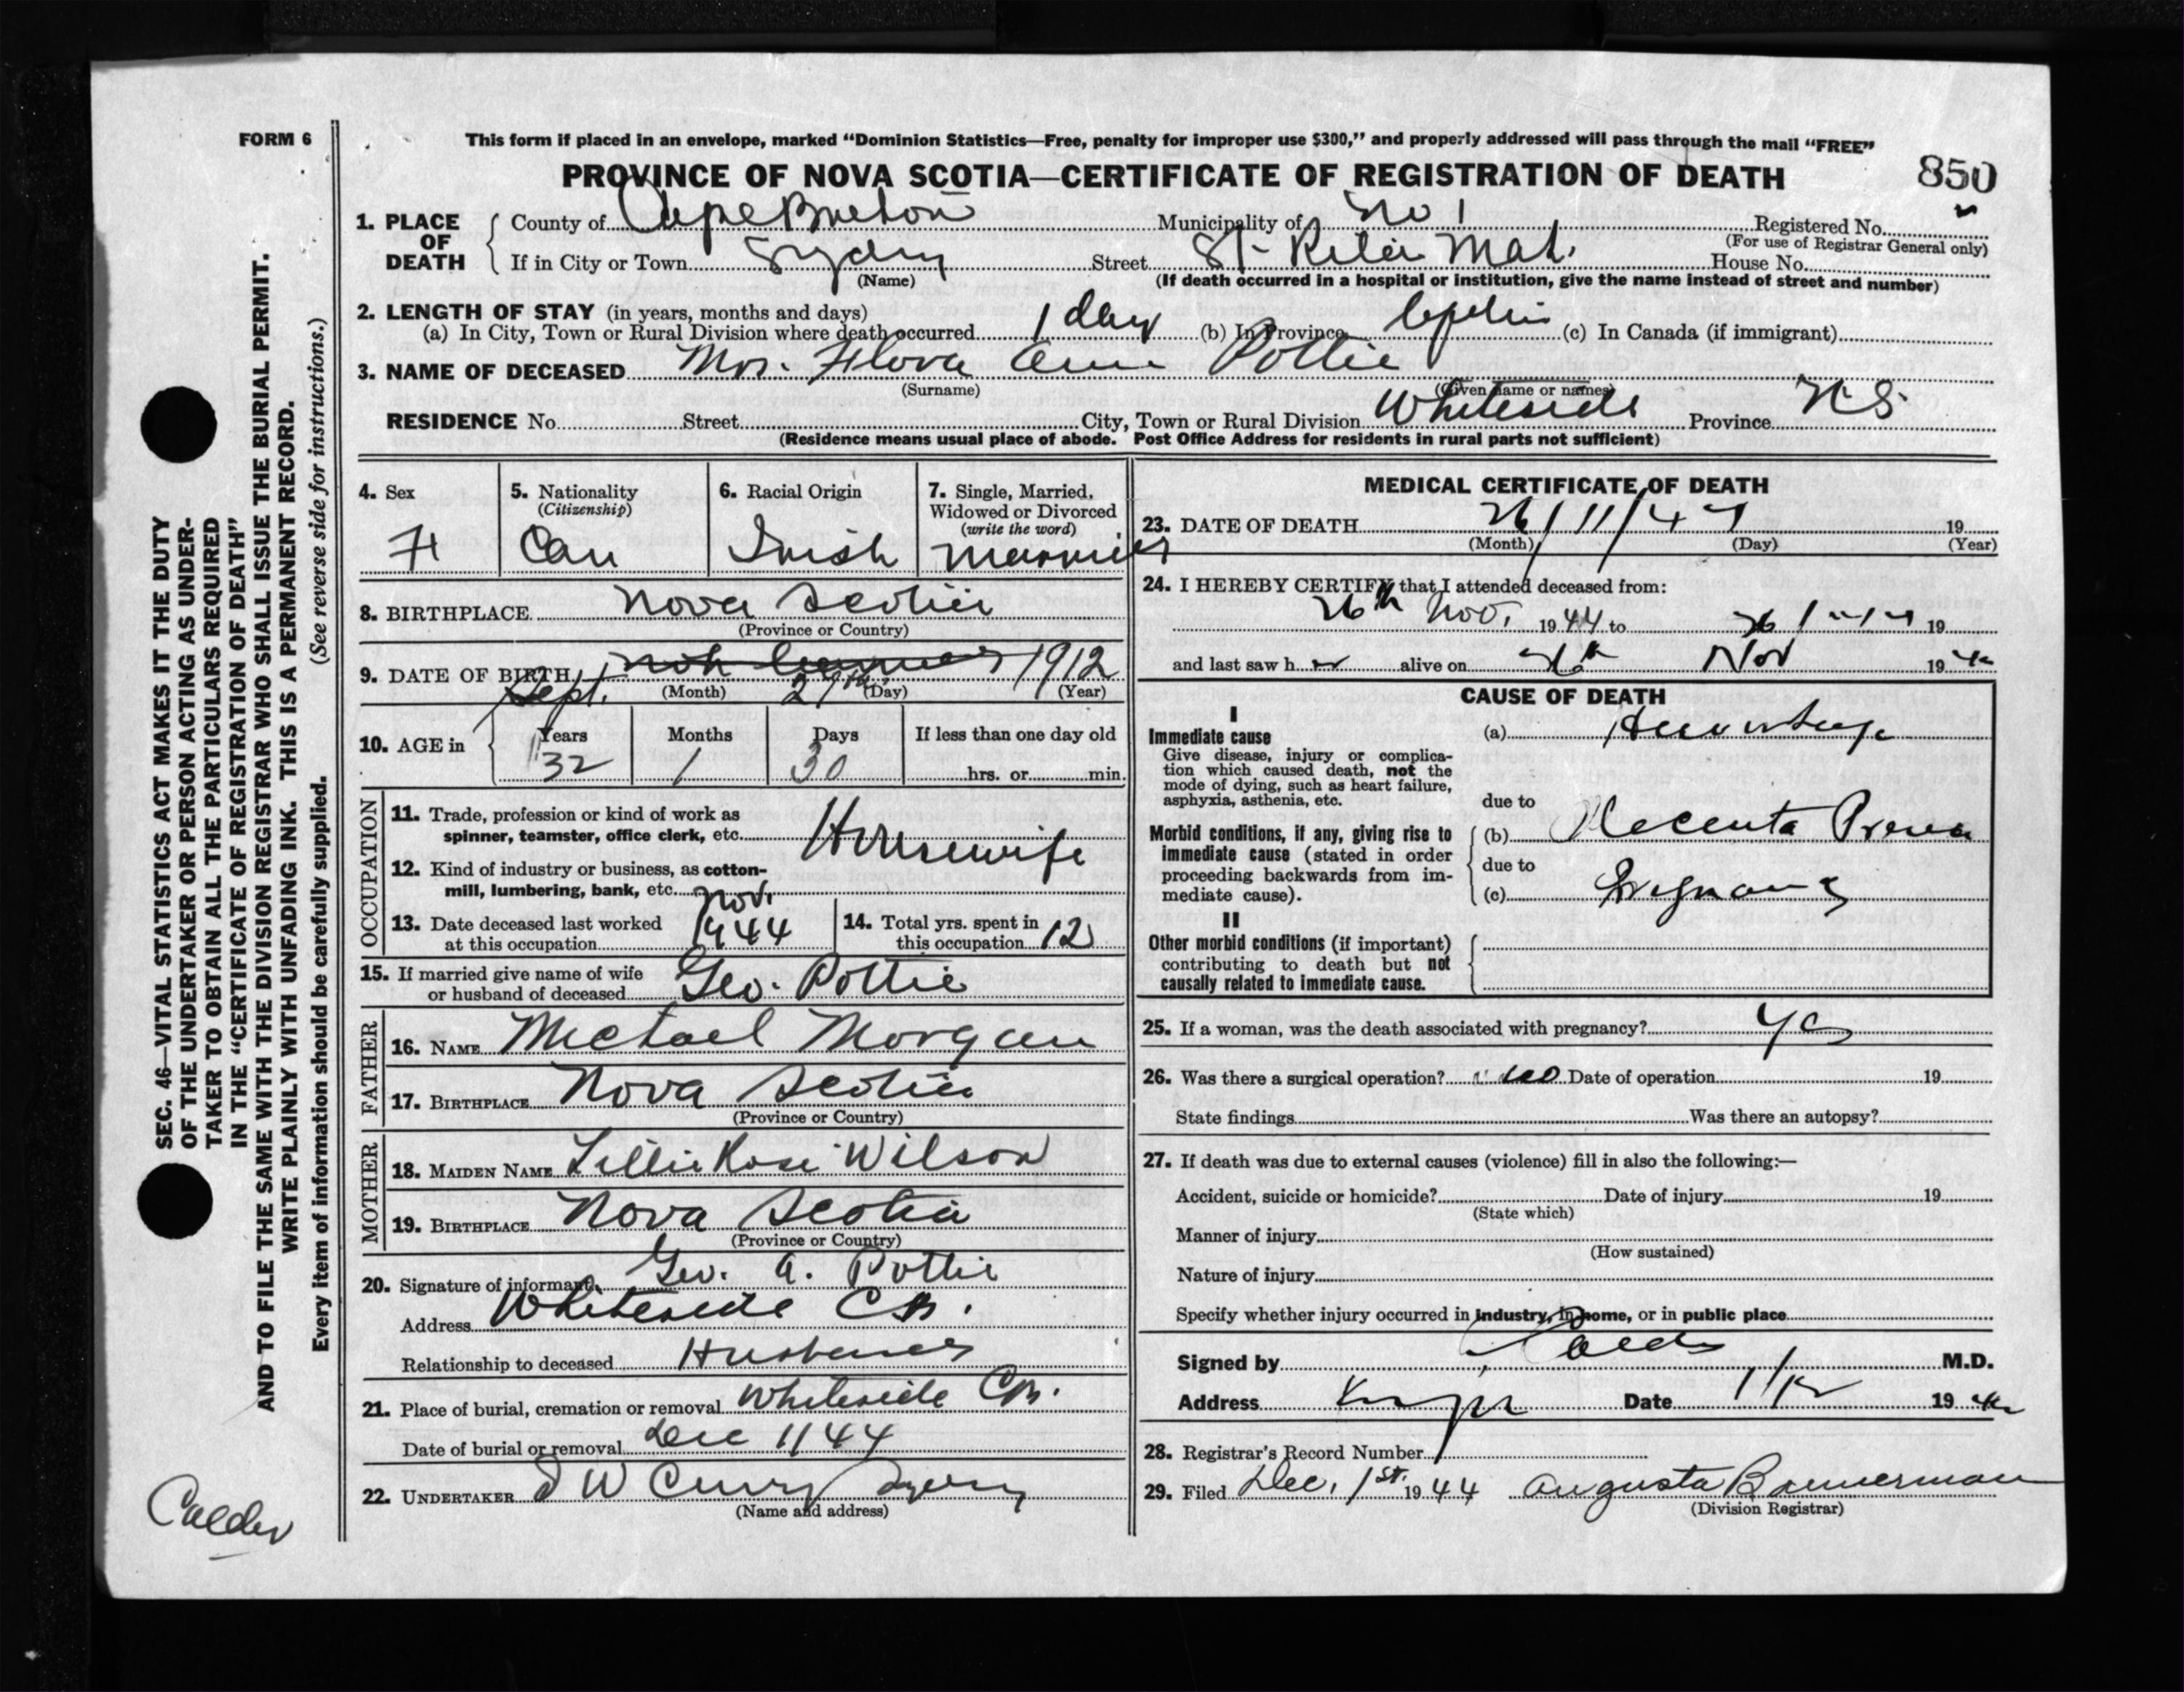 FORM 6
This form if placed in an envelope, marked “Dominion Statistics—Free, penalty for improper use $300,” and properly addressed will pass through the mail “FREE”
PROVINCE OF NOVA SCOTIA—CERTIFICATE OF REGISTRATION OF DEATH
850
1. PLACE OF DEATH
County of Cape Breton Municipality of No 1 Registered No.
(For use of Registrar General only)
If in City or Town Sydney Street St. Rita Mat. House No.
(Name) (If death occurred in a hospital or institution, give the name instead of street and number)
2. LENGTH OF STAY (in years, months and days)
(a) In City, Town or Rural Division where death occurred 1 day (b) In Province (c) In Canada (if immigrant)
3. NAME OF DECEASED Mrs. Flora Ann Pottie
(Surname) (Given name or names)
RESIDENCE No. Street City, Town or Rural Division Whiteside Province N.S.
(Residence means usual place of abode. Post Office Address for residents in rural parts not sufficient)
4. Sex F
5. Nationality (Citizenship) Can
6. Racial Origin Irish
7. Single, Married, Widowed or Divorced (write the word) Married
8. BIRTHPLACE Nova Scotia
(Province or Country)
9. DATE OF BIRTH Sept. 27th 1912
(Month) (Day) (Year)
10. AGE in Years Months Days If less than one day old
32 1 30 hrs. or min.
OCCUPATION
11. Trade, profession or kind of work as
spinner, teamster, office clerk, etc. Housewife
12. Kind of industry or business, as cotton-
mill, lumbering, bank, etc.
13. Date deceased last worked
at this occupation Nov. 1944
14. Total yrs. spent in
this occupation 12
15. If married give name of wife
or husband of deceased Geo. Pottie
FATHER
16. NAME Michael Morgan
17. BIRTHPLACE Nova Scotia
(Province or Country)
MOTHER
18. MAIDEN NAME Lillie Rose Wilson
19. BIRTHPLACE Nova Scotia
(Province or Country)
20. Signature of informant Geo. A. Pottie
Address Whiteside C.B.
Relationship to deceased Husband
21. Place of burial, cremation or removal Whiteside C.B.
Date of burial or removal Dec 1/44
22. UNDERTAKER W Curry Sydney
(Name and address)
MEDICAL CERTIFICATE OF DEATH
23. DATE OF DEATH 26/11/44 19
(Month) (Day) (Year)
24. I HEREBY CERTIFY that I attended deceased from:
26th Nov. 1944 to 26 19
and last saw her alive on 26th Nov 1944
CAUSE OF DEATH
I
Immediate cause
Give disease, injury or complica-
tion which caused death, not the
mode of dying, such as heart failure,
asphyxia, asthenia, etc.
(a) Hemorrhage
due to
Morbid conditions, if any, giving rise to
immediate cause (stated in order
proceeding backwards from im-
mediate cause).
(b) Placenta Previa
due to
(c) Pregnancy
II
Other morbid conditions (if important)
contributing to death but not
causally related to immediate cause.
25. If a woman, was the death associated with pregnancy? Yes
26. Was there a surgical operation? no Date of operation 19
State findings Was there an autopsy?
27. If death was due to external causes (violence) fill in also the following:—
Accident, suicide or homicide? Date of injury 19
(State which)
Manner of injury
(How sustained)
Nature of injury
Specify whether injury occurred in industry, in home, or in public place
Signed by Calder M.D.
Address Date 1/12 1944
28. Registrar's Record Number
29. Filed Dec. 1st. 1944 Augusta Bannerman
(Division Registrar)
SEC. 46—VITAL STATISTICS ACT MAKES IT THE DUTY
OF THE UNDERTAKER OR PERSON ACTING AS UNDER-
TAKER TO OBTAIN ALL THE PARTICULARS REQUIRED
IN THE “CERTIFICATE OF REGISTRATION OF DEATH”
AND TO FILE THE SAME WITH THE DIVISION REGISTRAR WHO SHALL ISSUE THE BURIAL PERMIT.
WRITE PLAINLY WITH UNFADING INK. THIS IS A PERMANENT RECORD.
Every item of information should be carefully supplied. (See reverse side for instructions.)
Calder